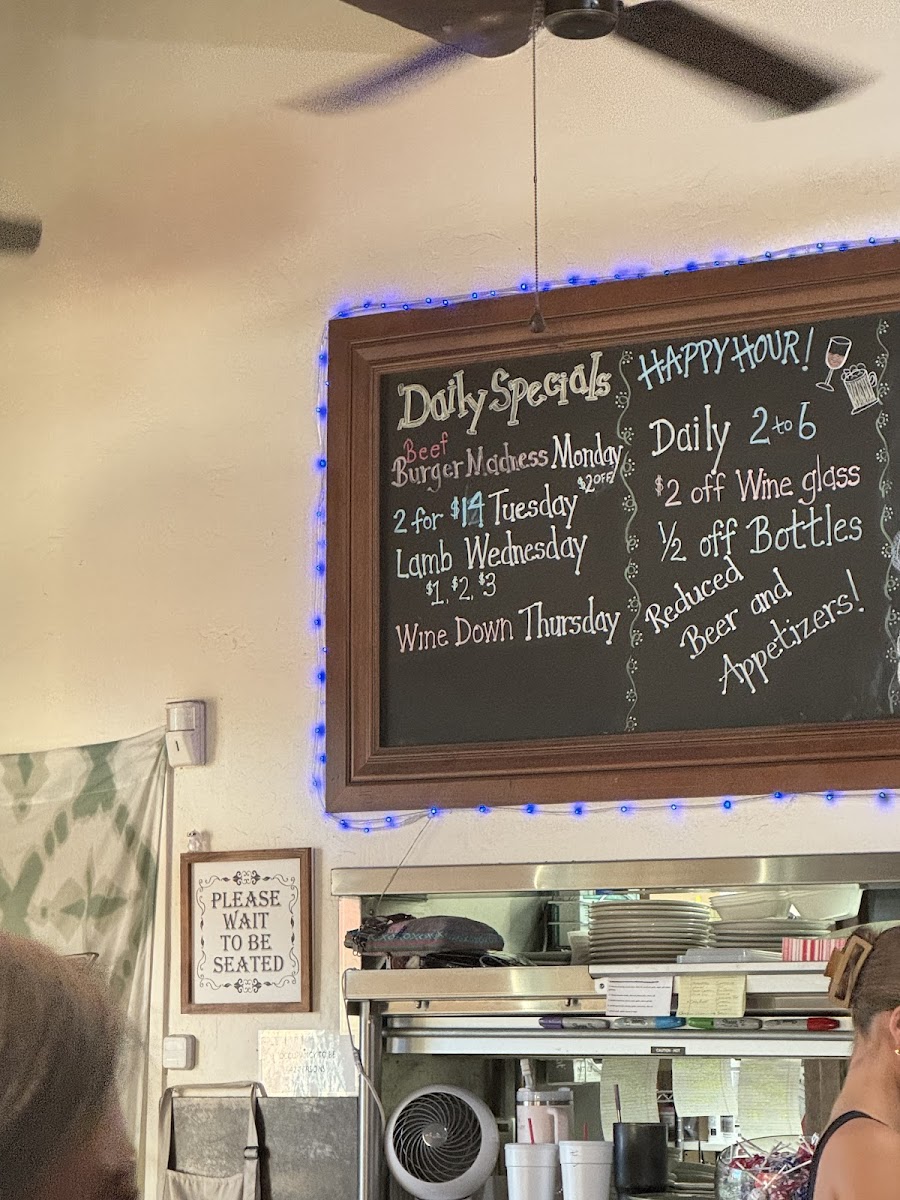 Daily Specials
Beef
Burger Madness Monday
$2 OFF
2 for $14 Tuesday
Lamb Wednesday
$1, $2, $3
Wine Down Thursday
HAPPY HOUR!
Daily 2 to 6
$2 off Wine glass
½ off Bottles
Reduced
Beer and
Appetizers!
PLEASE
WAIT
TO BE
SEATED